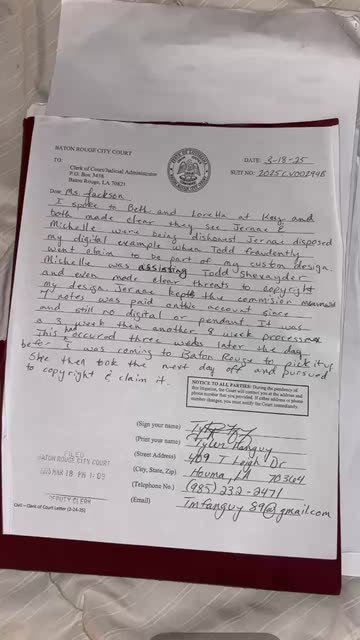 BATON ROUGE CITY COURT
TO:
Clerk of Court/Judicial Administrator
P.O. Box 3438
Baton Rouge, LA 70821
DATE: 3-18-25
SUIT NO: 2025CV00294B
Dear Ms. Jackson
I spoke to Beth and Loretta at Kays and
both made clear they see Jerane &
Michelle were being dishonest. Jeran disposed
my digital example when Todd fraudently
went claim to be part of my custom design.
Michelle was assisting Todd Shexnayder
and even made clear threats to copyright
my design. Jerane kept the commision
7 notes was paid on this account since
and still no digital or pendant. It was
a 3 week then another 8 week process
This had occured three weeks later the day
before I was coming to Baton Rouge to pick it up
She then took the next day off and pursued
to copyright & claim it.
NOTICE TO ALL PARTIES: During the pendency of
this litigation, the Court will contact you at the address and
phone number that you provided. If either address or phone
number changes, you must notify the Court immediately.
(Sign your name)
(Print your name) Tyler Fanguy
(Street Address) 409 T Leigh Dr
(City, State, Zip) Houma, LA 70364
(Telephone No.) (985) 232-2471
(Email) Tmfanguy89@gmail.com
FILED
BATON ROUGE CITY COURT
2025 MAR 18 PM 1:09
DEPUTY CLERK
Civil – Clerk of Court Letter (2-24-25)